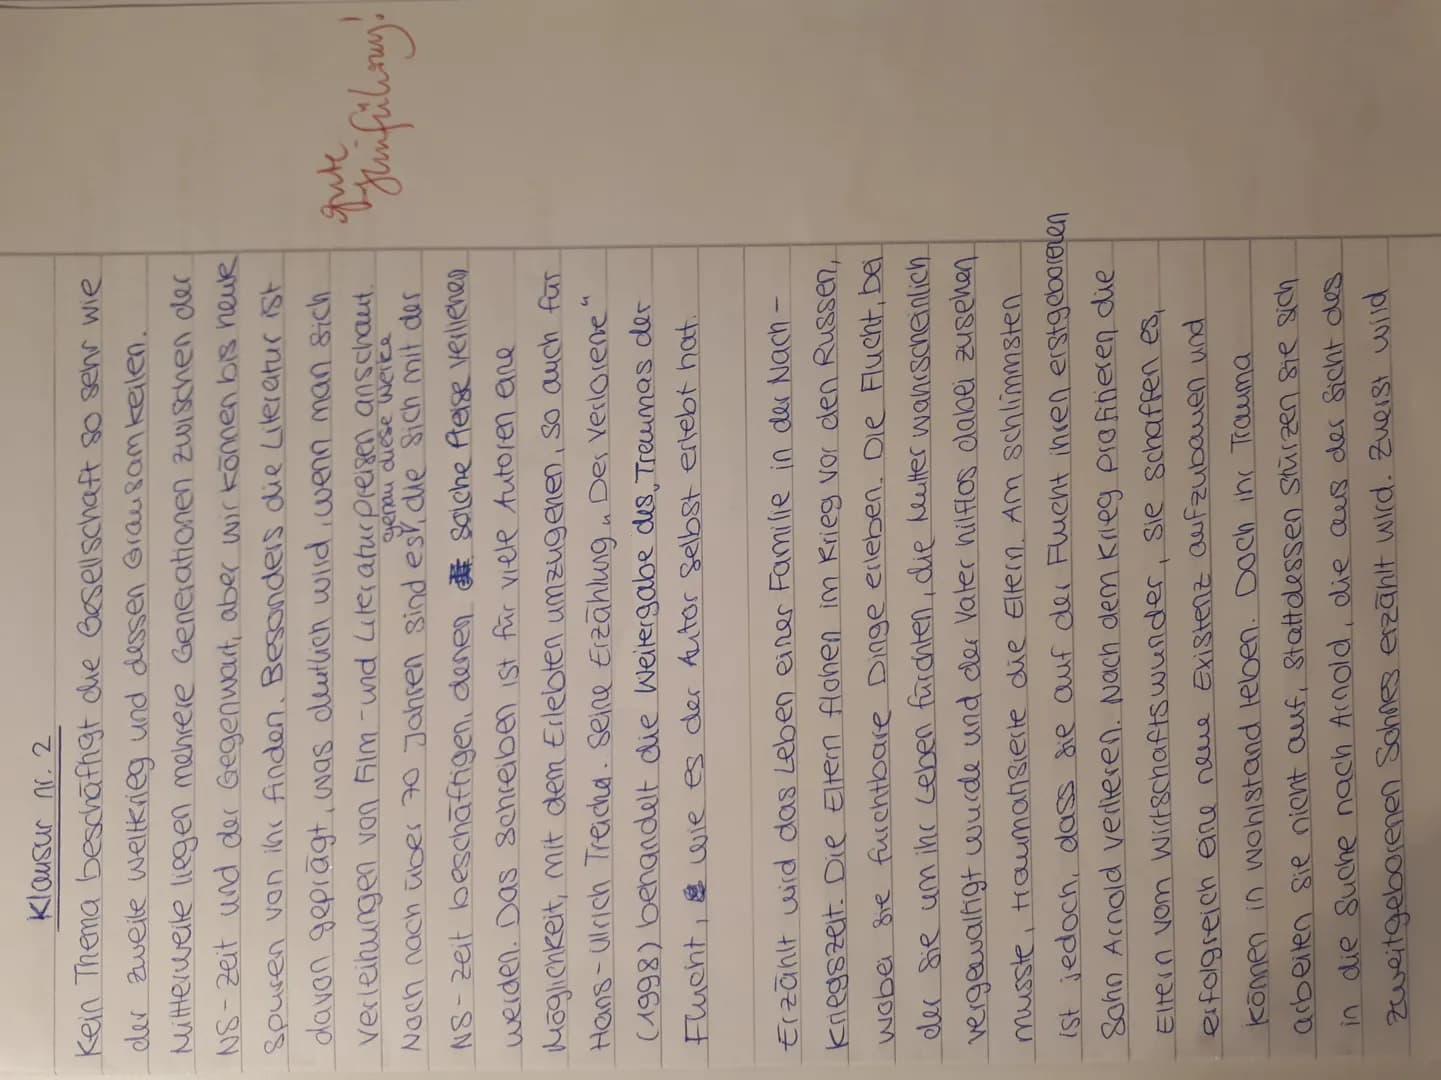 Klausur nr. 2
Kein Thema beschäftigt die Gesellschaft so sehr wie
der zweite Weltkrieg und dessen Grausamkeiten.
Mittlerweile liegen mehrere Generationen zwischen der
NS-Zeit und der Gegenwart, aber wir können bis heute
Spuren von ihr finden. Besonders die Literatur ist
davon geprägt, was deutlich wird, wenn man sich
Verleihungen von Film- und Literaturpreisen anschaut.
genau diese werke
Nach nach über 70 Jahren sind es, die sich mit der
NS-Zeit beschäftigen, denen solche Preise verliehen
werden. Das Schreiben ist für viele Autoren eine
Möglichkeit, mit dem Erlebten umzugehen, so auch für
Hans-Ulrich Treichel. Seine Erzählung „Der Verlorene“
(1998) behandelt die Weitergabe des Traumas der
Flucht, wie es der Autor selbst erlebt hat.
gute
Hinführung!
Erzählt wird das Leben einer Familie in der Nach-
kriegszeit. Die Eltern flohen im Krieg vor den Russen,
wobei sie furchtbare Dinge erleben. Die Flucht, bei
der sie um ihr Leben fürchten, die Mutter wahrscheinlich
vergewaltigt wurde und der Vater hilflos dabei zusehen
musste, traumatisierte die Eltern. Am schlimmsten
ist jedoch, dass sie auf der Flucht ihren erstgeborenen
Sohn Arnold verlieren. Nach dem Krieg profitieren die
Eltern vom Wirtschaftswunder, sie schaffen es,
erfolgreich eine neue Existenz aufzubauen und
können in Wohlstand leben. Doch ihr Trauma
arbeiten sie nicht auf, stattdessen stürzen sie sich
in die Suche nach Arnold, die aus der Sicht des
zweitgeborenen Sohnes erzählt wird. Zuerst wird